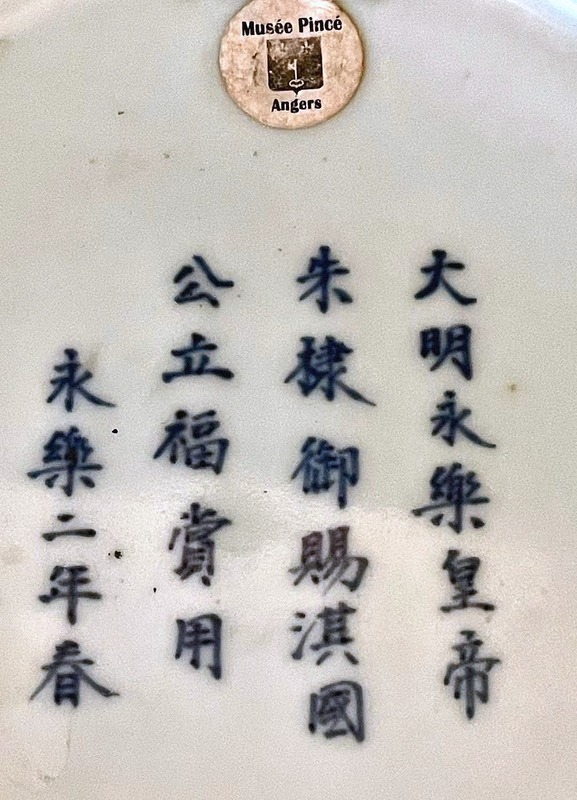 Musée Pincé
Angers
大明永樂皇帝
朱棣御賜淇國
公立福賞用
永樂二年春